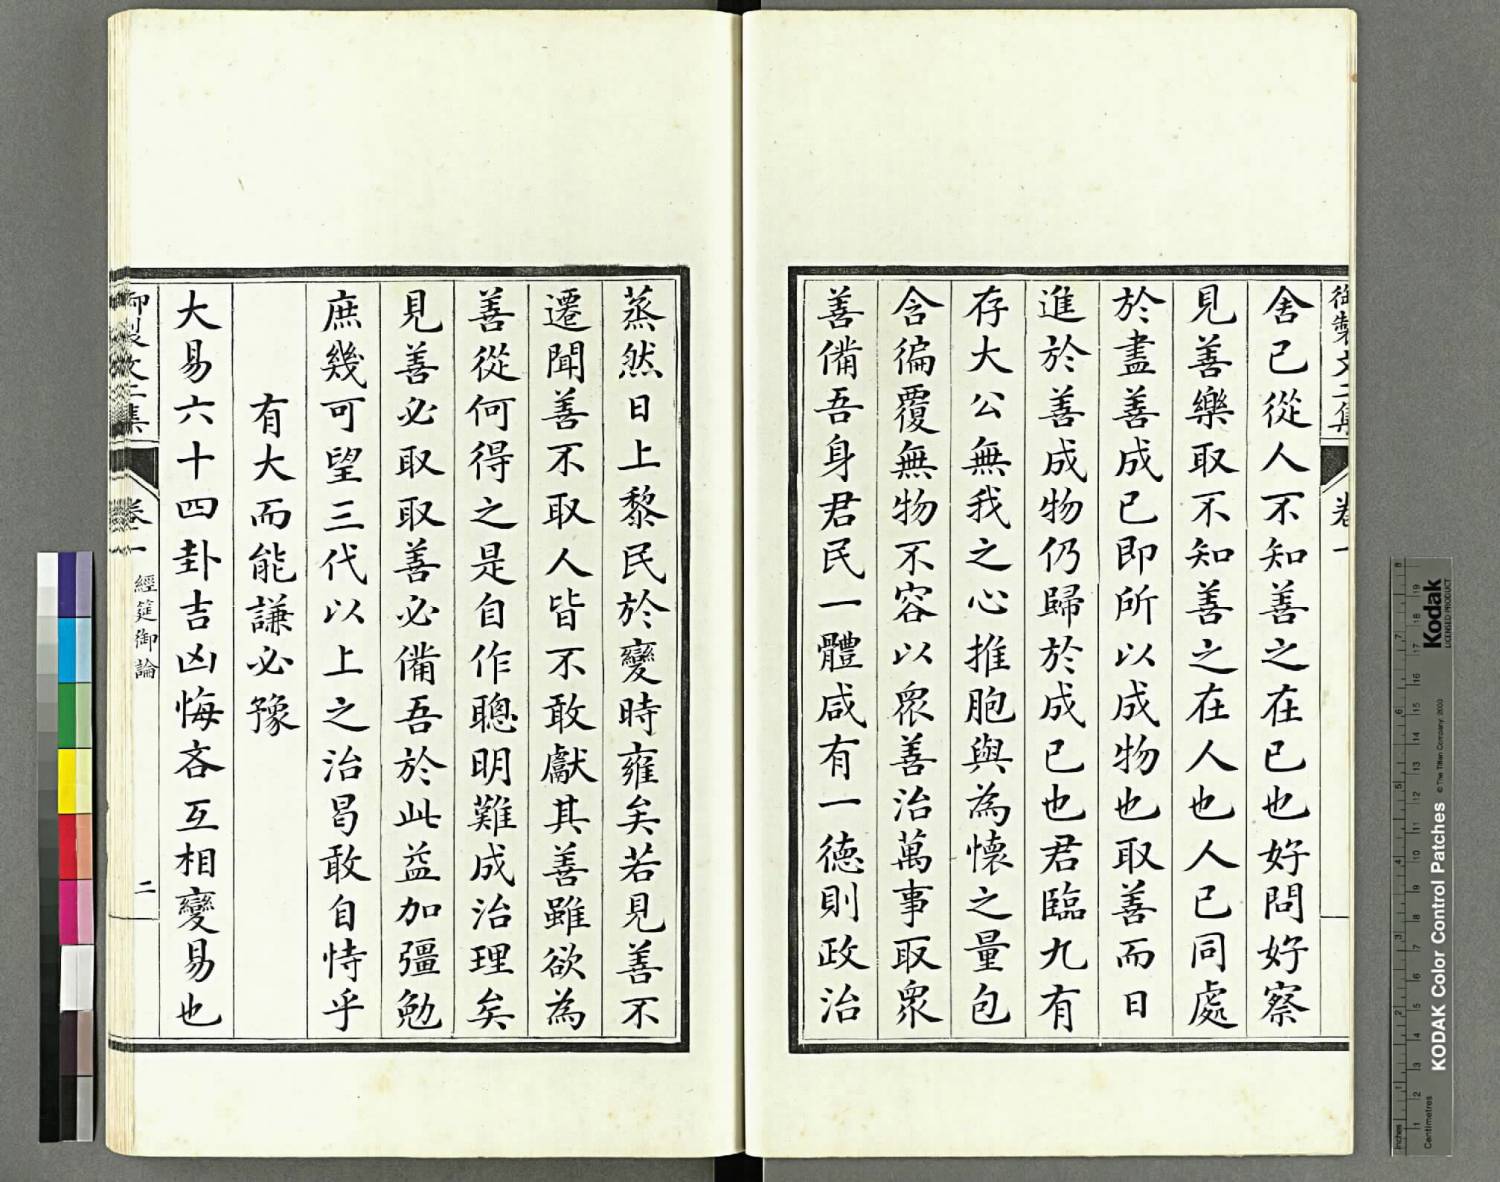 御製文二集
卷一
舍己從人不知善之在己也好問好察
見善樂取不知善之在人也人己同處
於盡善成己即所以成物也取善而日
進於善成物仍歸於成己也君臨九有
存大公無我之心推胞與為懷之量包
含徧覆無物不容以眾善治萬事取眾
善備吾身君民一體咸有一德則政治
蒸然日上黎民於變時雍矣若見善不
遷聞善不取人皆不敢獻其善雖欲為
善從何得之是自作聰明難成治理矣
見善必取取善必備吾於此益加彊勉
庶幾可望三代以上之治曷敢自恃乎
有大而能謙必豫
大易六十四卦吉凶悔吝互相變易也
御製文二集
卷一
經筵御論
二
Kodak
LICENSED PRODUCT
KODAK Color Control Patches
© The Tiffen Company, 2000
Inches
Centimetres